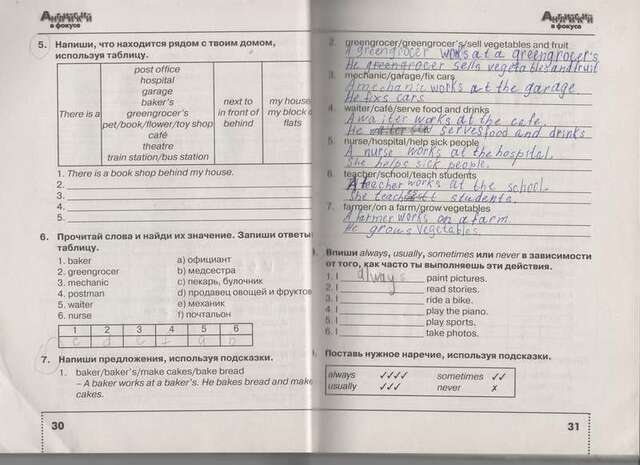 Английский
в фокусе
5. Напиши, что находится рядом с твоим домом,
используя таблицу.
There is a
post office
hospital
garage
baker's
greengrocer's
pet/book/flower/toy shop
café
theatre
train station/bus station
next to
in front of
behind
my house
my block
flats
1. There is a book shop behind my house.
2.
3.
4.
5.
6. Прочитай слова и найди их значение. Запиши ответы
таблицу.
1. baker a) официант
2. greengrocer b) медсестра
3. mechanic c) пекарь, булочник
4. postman d) продавец овощей и фруктов
5. waiter e) механик
6. nurse f) почтальон
1 2 3 4 5 6
c d e f a b
7. Напиши предложения, используя подсказки.
1. baker/baker's/make cakes/bake bread
– A baker works at a baker's. He bakes bread and make
cakes.
30
Английский
в фокусе
2. greengrocer/greengrocer's/sell vegetables and fruit
A greengrocer works at a greengrocer's
He greengrocer sells vegetables and fruit
3. mechanic/garage/fix cars
A mechanic works at the garage.
He fixs cars.
4. waiter/café/serve food and drinks
A waiter works at the cafe.
He serves food and drinks
5. nurse/hospital/help sick people
A nurse works at the hospital.
She helps sick people.
6. teacher/school/teach students
A teacher works at the school.
She students.
7. farmer/on a farm/grow vegetables
A farmer works on a farm.
He grows vegetables.
Впиши always, usually, sometimes или never в зависимости
от того, как часто ты выполняешь эти действия.
1. I always paint pictures.
2. I read stories.
3. I ride a bike.
4. I play the piano.
5. I play sports.
6. I take photos.
Поставь нужное наречие, используя подсказки.
always ✓✓✓✓ sometimes ✓✓
usually ✓✓✓ never ✗
31